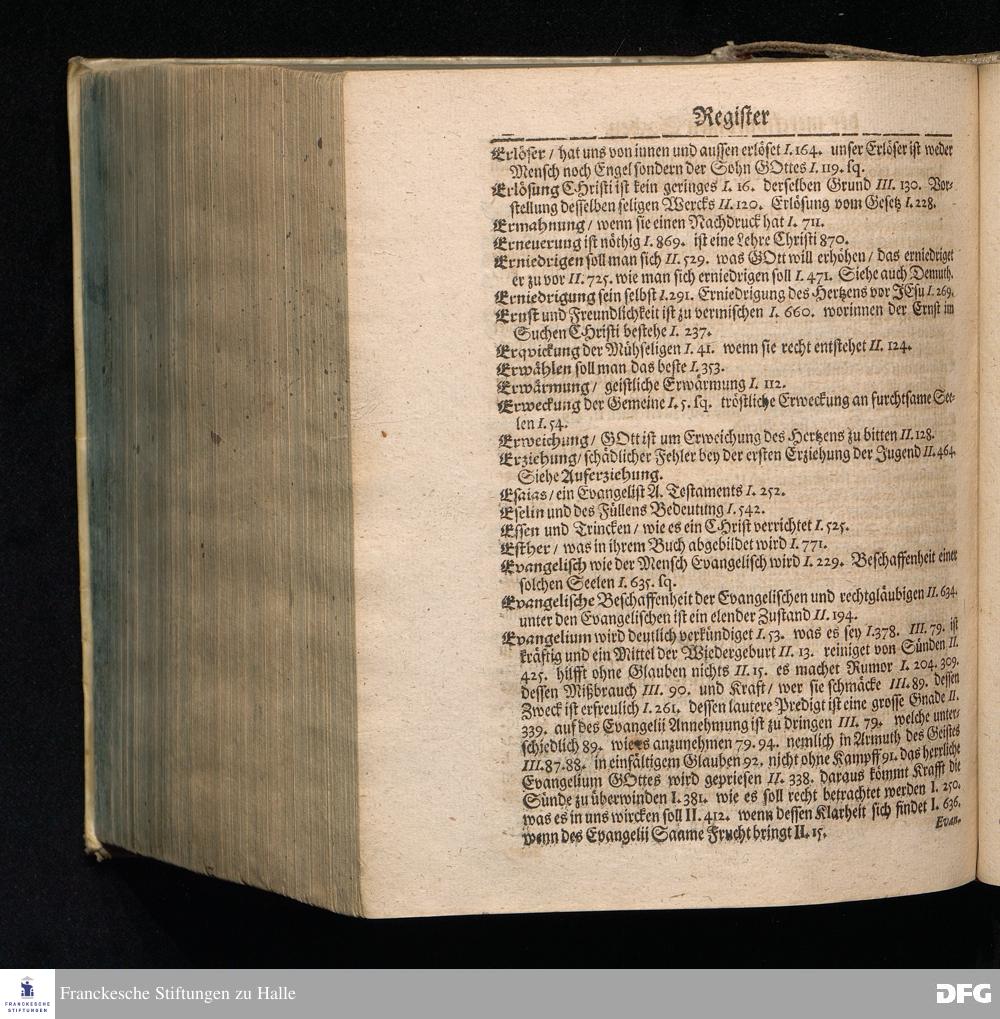 Register
Erlöser / hat uns von innen und aussen erlöset I. 164. unser Erlöser ist weder
Mensch noch Engel sondern der Sohn GOttes I. 119. sq.
Erlösung CHristi ist kein geringes I. 16. derselben Grund III. 130. Vor-
stellung desselben seligen Wercks II. 120. Erlösung vom Gesetz I. 228.
Ermahnung / wenn sie einen Nachdruck hat I. 711.
Erneuerung ist nöthig I. 869. ist eine Lehre Christi 870.
Erniedrigen soll man sich II. 529. was GOtt will erhöhen / das erniedriget
er zu vor II. 725. wie man sich erniedrigen soll I. 471. Siehe auch Demuth.
Erniedrigung sein selbst I. 291. Erniedrigung des Hertzens vor JEsu I. 269.
Ernst und Freundlichkeit ist zu vermischen I. 660. worinnen der Ernst im
Suchen CHristi bestehe I. 237.
Erqvickung der Mühseligen I. 41. wenn sie recht entstehet II. 124.
Erwählen soll man das beste I. 353.
Erwärmung / geistliche Erwärmung I. 112.
Erweckung der Gemeine I. 5. sq. tröstliche Erweckung an furchtsame See-
len I. 54.
Erweichung / GOtt ist um Erweichung des Hertzens zu bitten II. 128.
Erziehung / schädlicher Fehler bey der ersten Erziehung der Jugend II. 464.
Siehe Auferziehung.
Esaias / ein Evangelist A. Testaments I. 252.
Eselin und des Füllens Bedeutung I. 542.
Essen und Trincken / wie es ein CHrist verrichtet I. 525.
Esther / was in ihrem Buch abgebildet wird I. 771.
Evangelisch wie der Mensch Evangelisch wird I. 229. Beschaffenheit einer
solchen Seelen I. 635. sq.
Evangelische Beschaffenheit der Evangelischen und rechtgläubigen II. 634.
unter den Evangelischen ist ein elender Zustand II. 194.
Evangelium wird deutlich verkündiget I. 53. was es sey I. 378. III. 79. ist
kräftig und ein Mittel der Wiedergeburt II. 13. reiniget von Sünden II.
425. hilfft ohne Glauben nichts II. 15. es machet Rumor I. 204. 309.
dessen Mißbrauch III. 90. und Kraft / wer sie schmäcke III. 89. dessen
Zweck ist erfreulich I. 261. dessen lautere Predigt ist eine grosse Gnade II.
339. auf des Evangelii Annehmung ist zu dringen III. 79. welche unter-
schiedlich 89. wie es anzunehmen 79. 94. nemlich in Armuth des Geistes
III. 87. 88. in einfältigem Glauben 92. nicht ohne Kampff 91. das herrliche
Evangelium GOttes wird gepriesen II. 338. daraus kömmt Krafft die
Sünde zu überwinden I. 381. wie es soll recht betrachtet werden I. 250.
was es in uns wircken soll II. 412. wenn dessen Klarheit sich findet I. 636.
wenn des Evangelii Saame Frucht bringt II. 15.
Evan-
FRANCKESCHE
STIFTUNGEN
Franckesche Stiftungen zu Halle
DFG